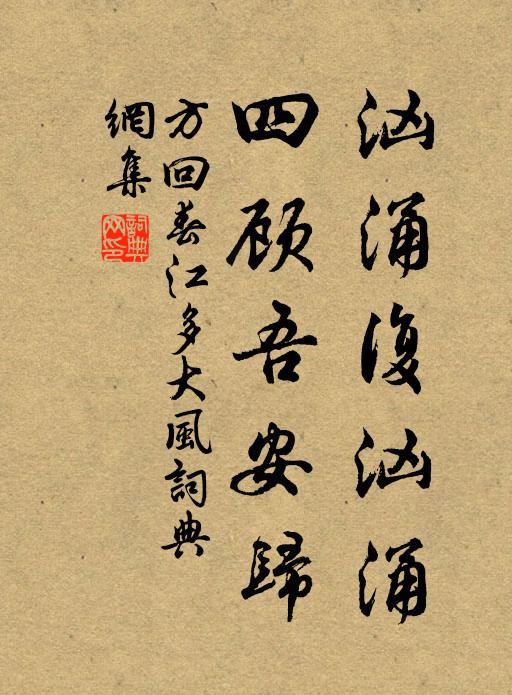 洶涌復洶涌
四顾吾安歸
方回春江多大風詞典
網集
詞典网印